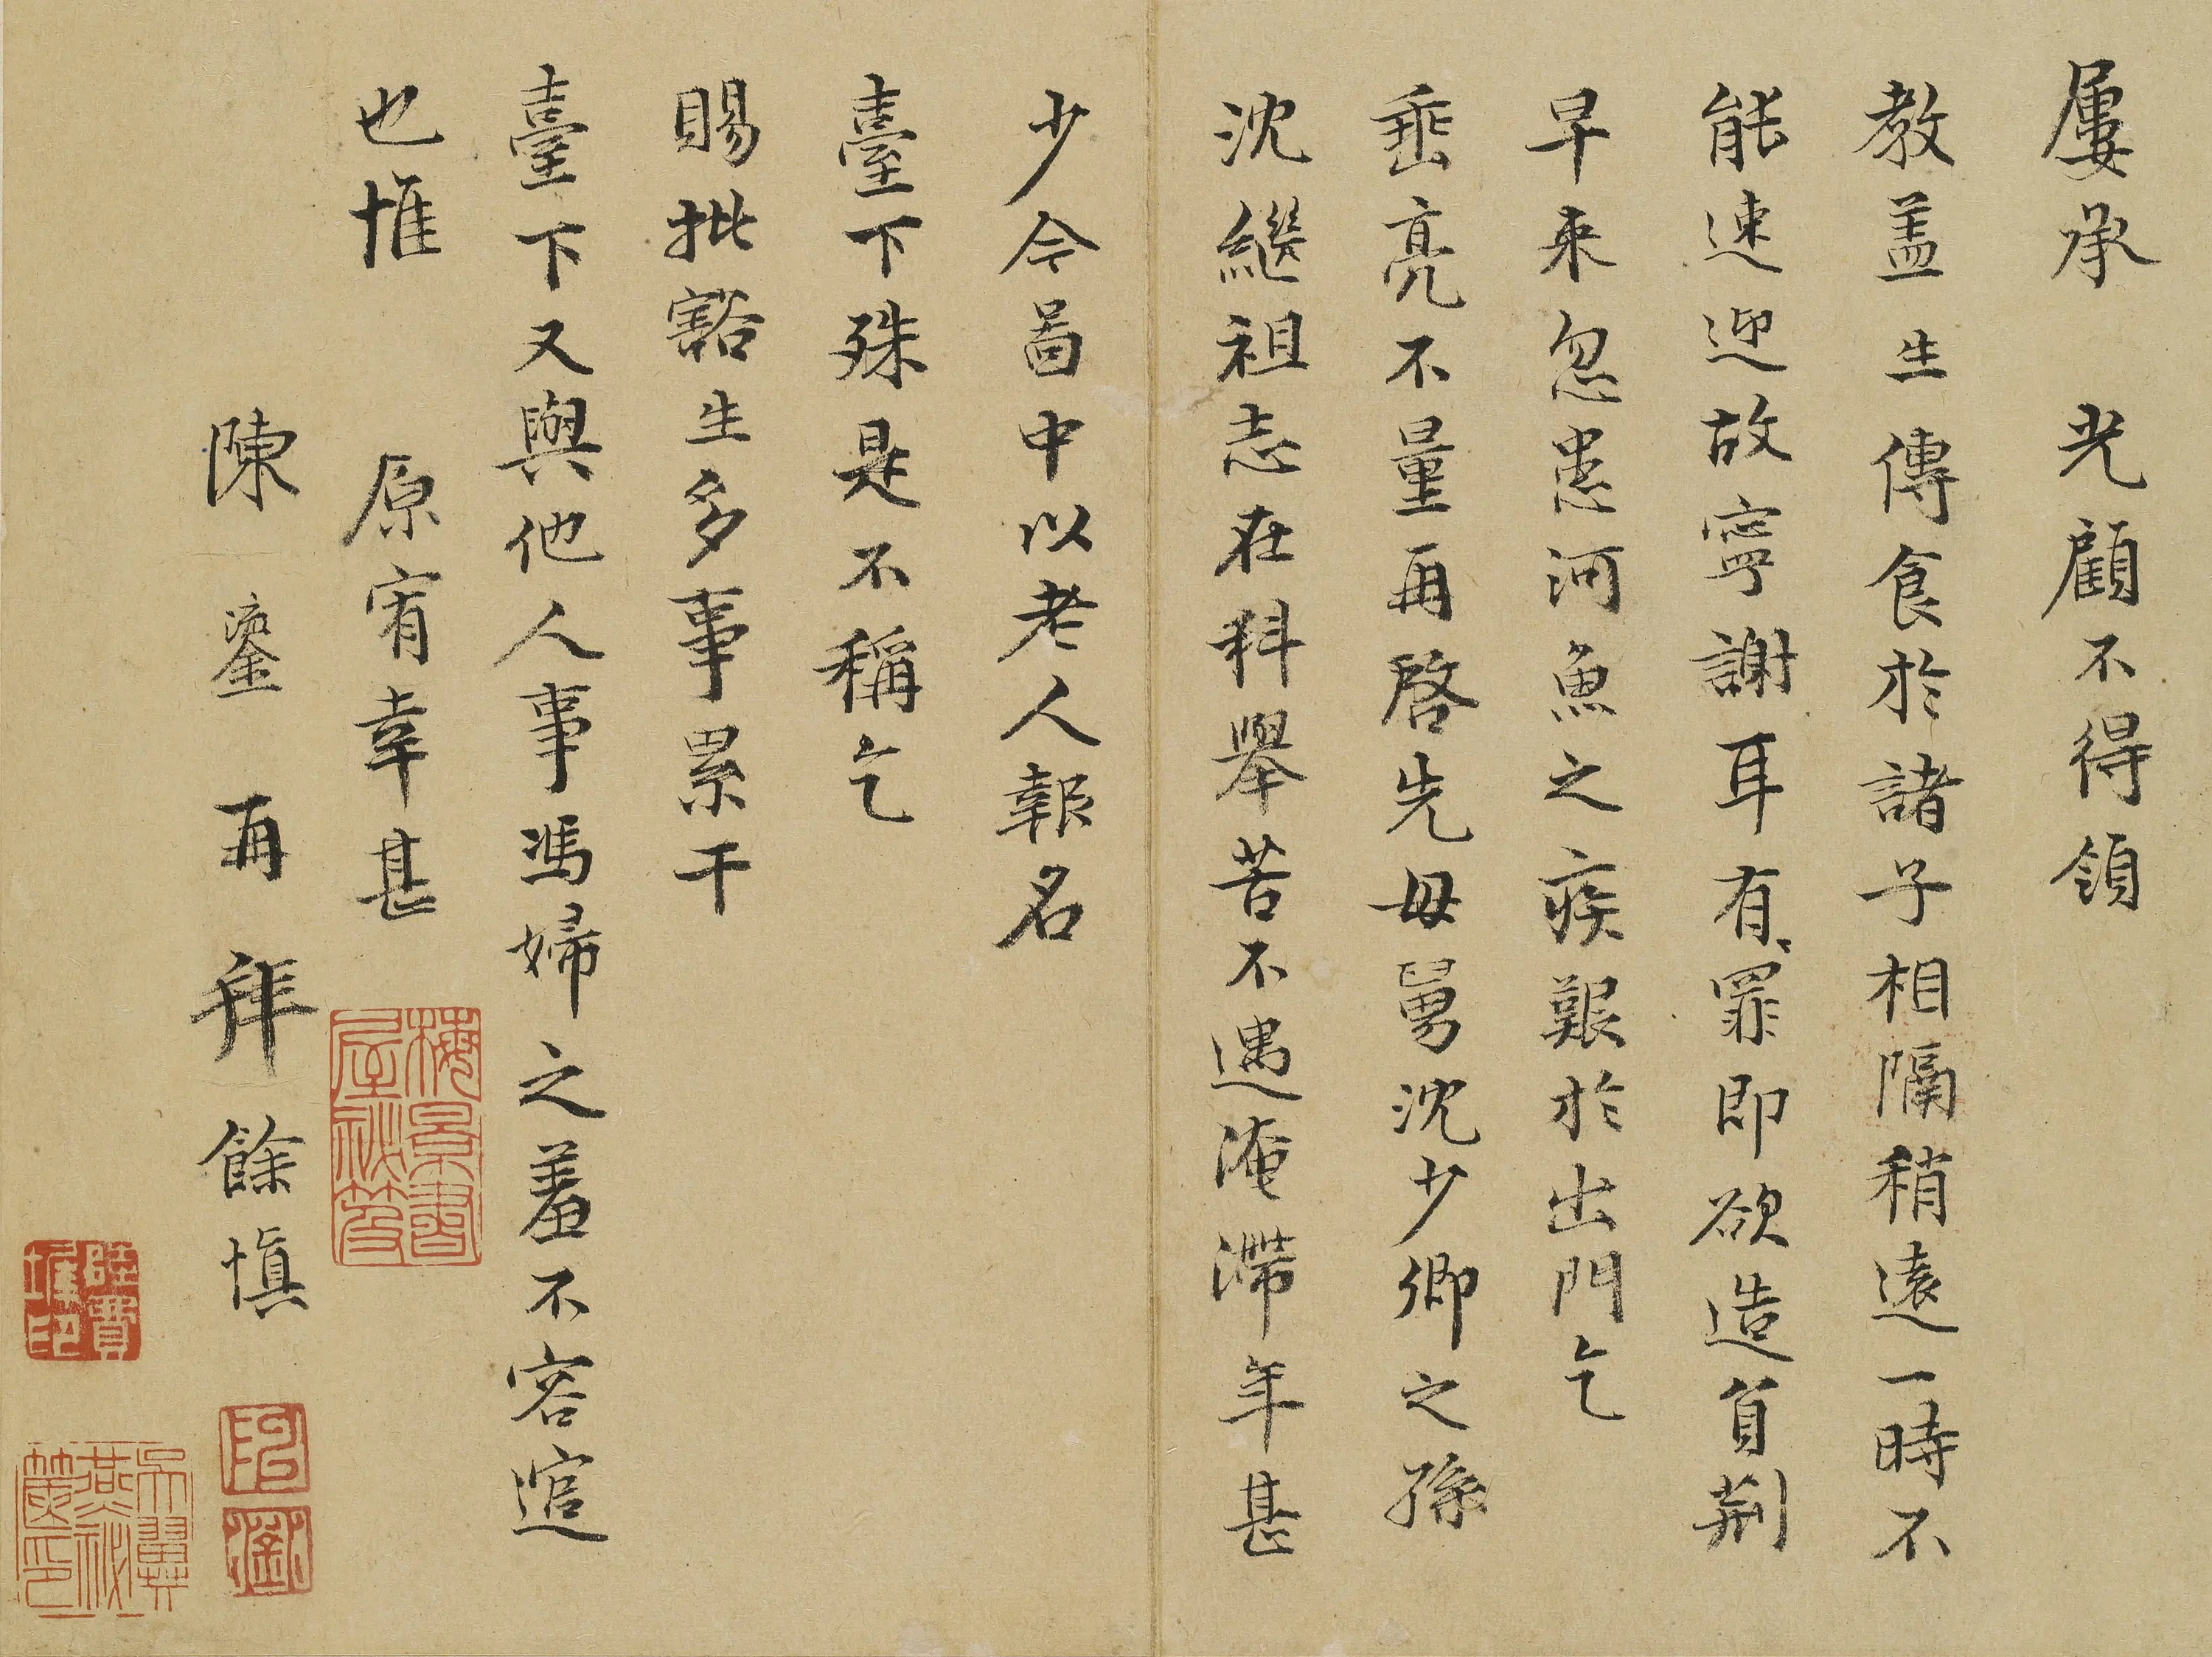 屢承　光顧不得領
教盖生傳食於諸子相隔稍遠一時不
能速迎故寧謝耳有罪即欲造負荆
早来忽患河魚之疾艱於出門乞
垂亮不量再啓先母舅沈少卿之孫
沈繼祖志在科舉苦不遇淹滯年甚
少今啚中以老人報名
臺下殊是不稱乞
賜批豁生多事累干
臺下又與他人事馮婦之羞不容逭
也惟　原宥幸甚
陳鎏再拜餘慎
梅景書屋祕笈